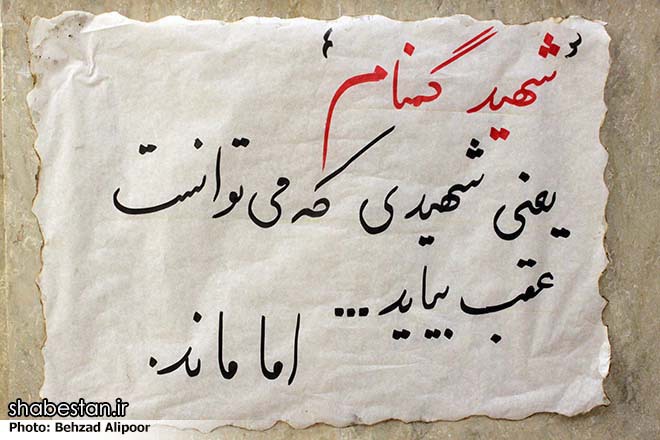 «شهید گمنام»
یعنی شهیدی که می توانست
عقب بیاید...
اما ماند.
shabestan.ir
Photo: Behzad Alipoor